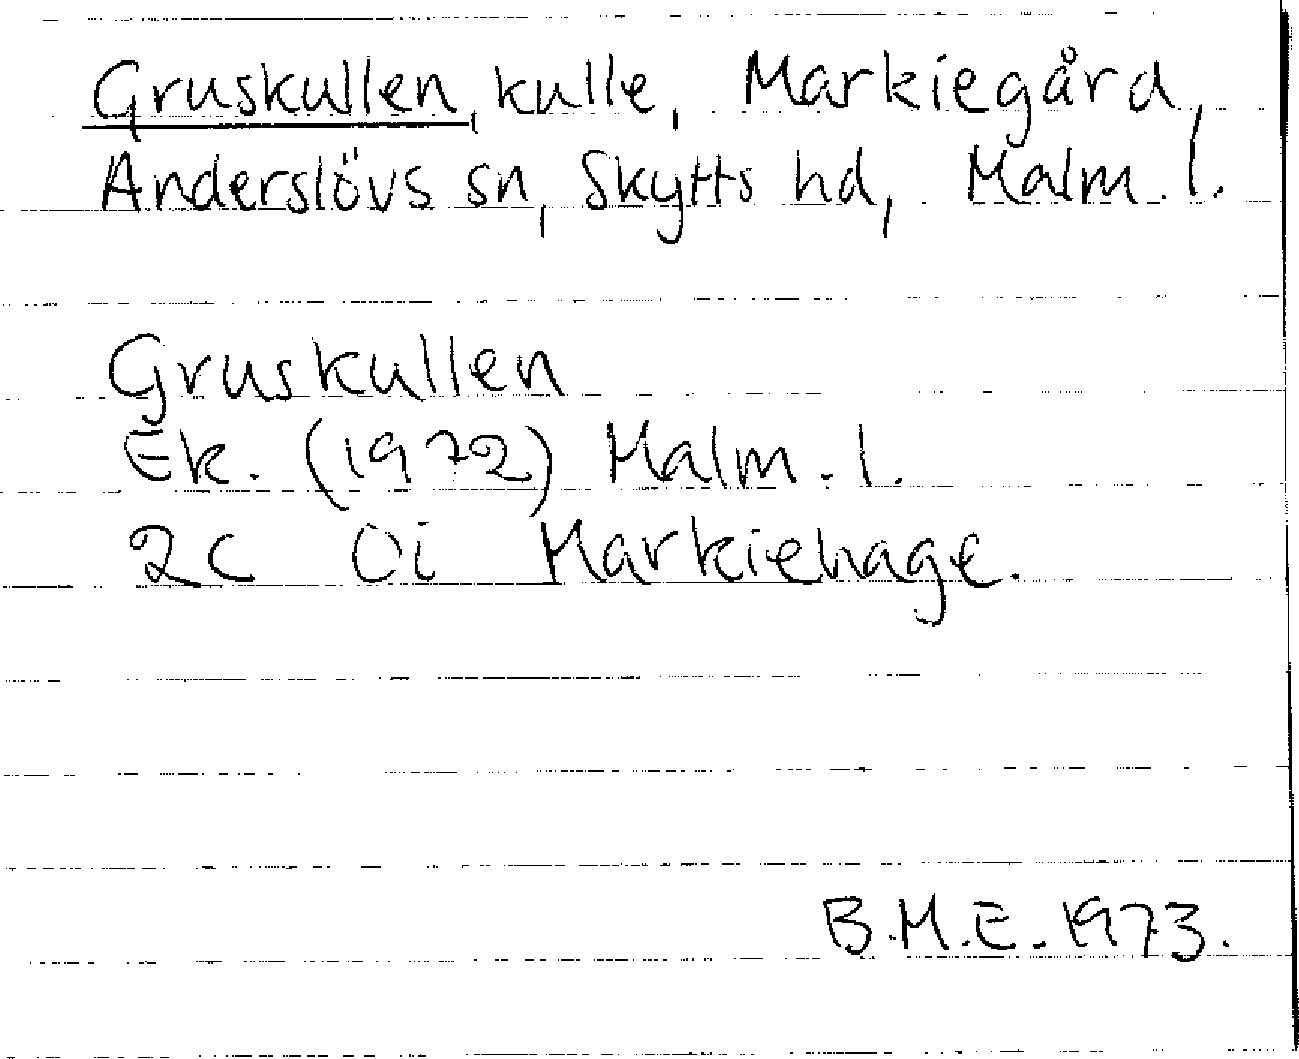 Gruskullen, kulle, Markiegård,
Anderslövs sn, Skytts hd, Malm. l.
Gruskullen
Ek. (1972) Malm. l.
2C 0i Markiehage.
B.M.E. 1973.